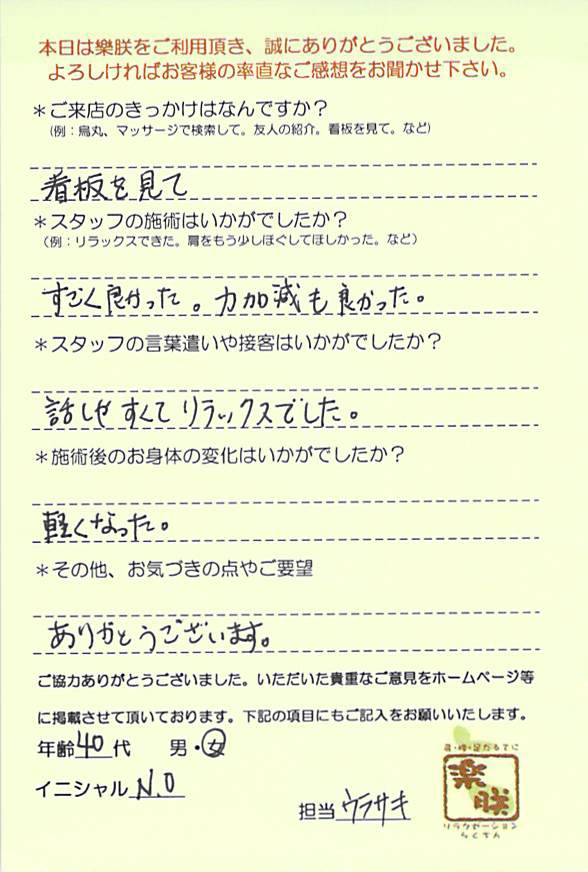 本日は樂朕をご利用頂き、誠にありがとうございました。
よろしければお客様の率直なご感想をお聞かせ下さい。
＊ご来店のきっかけはなんですか？
(例：烏丸、マッサージで検索して。友人の紹介。看板を見て。など)
看板を見て
＊スタッフの施術はいかがでしたか？
(例：リラックスできた。肩をもう少しほぐしてほしかった。など)
すごく良かった。力加減も良かった。
＊スタッフの言葉遣いや接客はいかがでしたか？
話しやすくてリラックスでした。
＊施術後のお身体の変化はいかがでしたか？
軽くなった。
＊その他、お気づきの点やご要望
ありがとうございます。
ご協力ありがとうございました。いただいた貴重なご意見をホームページ等
に掲載させて頂いております。下記の項目にもご記入をお願いいたします。
年齢40代 男・女
イニシャル N.O
担当 ウラサキ
楽朕
リラクゼーション
らくちん